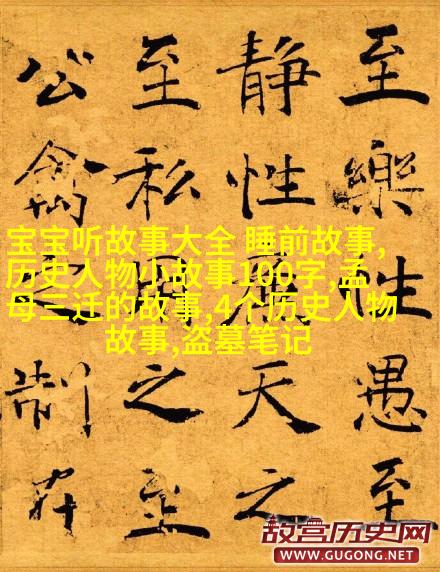 至樂性愚至
静性廉天之
至私用之至
公禽之制在
宝宝听故事大全 睡前故事,
历史人物小故事100字,孟
母三迁的故事,4个历史人物
故事,盗墓笔记
故宫历史网
WWW.GUGONG.NET